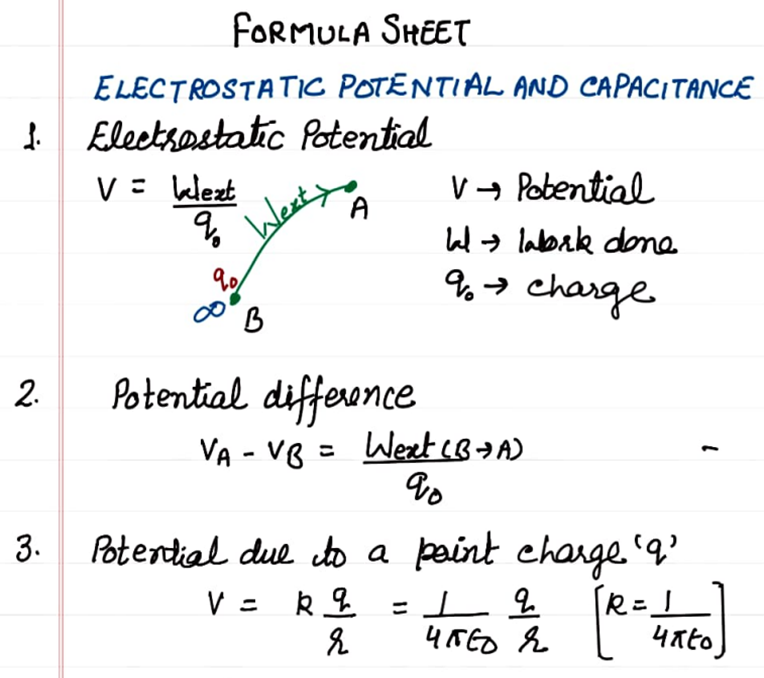 FORMULA SHEET
ELECTROSTATIC POTENTIAL AND CAPACITANCE
1. Electrostatic Potential
V = Wext / q₀
Wext
A
q₀
∞
B
V → Potential
W → Work done
q₀ → charge
2. Potential difference
VA - VB = Wext (B→A) / q₀
-
3. Potential due to a point charge 'q'
V = k q/r = 1/4πϵ₀ q/r [k = 1/4πϵ₀]